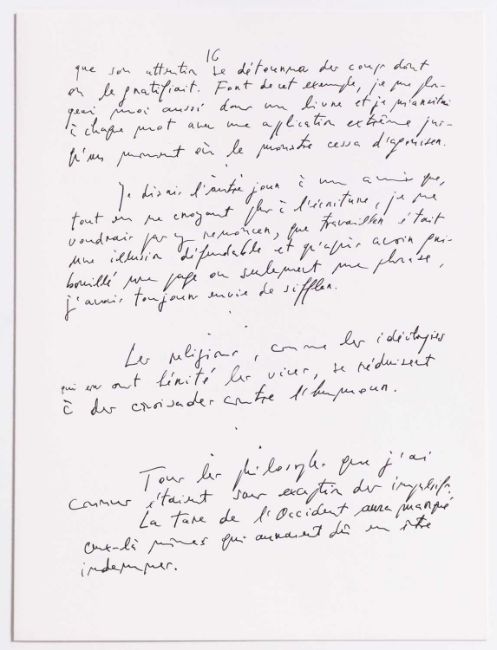 16
que son attention se détourna des coups dont
on le gratifiait. Fort de cet exemple, je me plon-
geai moi aussi dans un livre et je m'arrêtai
à chaque mot avec une application extrême jus-
qu'au moment où le monstre cessa d'agoniser.
Je disais l'autre jour à un ami que,
tout en ne croyant plus à l'écriture, je ne
voudrais pas y renoncer, que travailler était
une illusion défendable et qu'après avoir gri-
bouillé une page ou seulement une phrase,
j'avais toujours envie de siffler.
Les religions, comme les idéologies
qui en ont hérité les vices, se réduisent
à des croisades contre l'humour.
Tous les philosophes que j'ai
connus étaient sans exception des impulsifs.
La tare de l'Occident aura marqué
ceux-là mêmes qui auraient dû en être
indemnes.